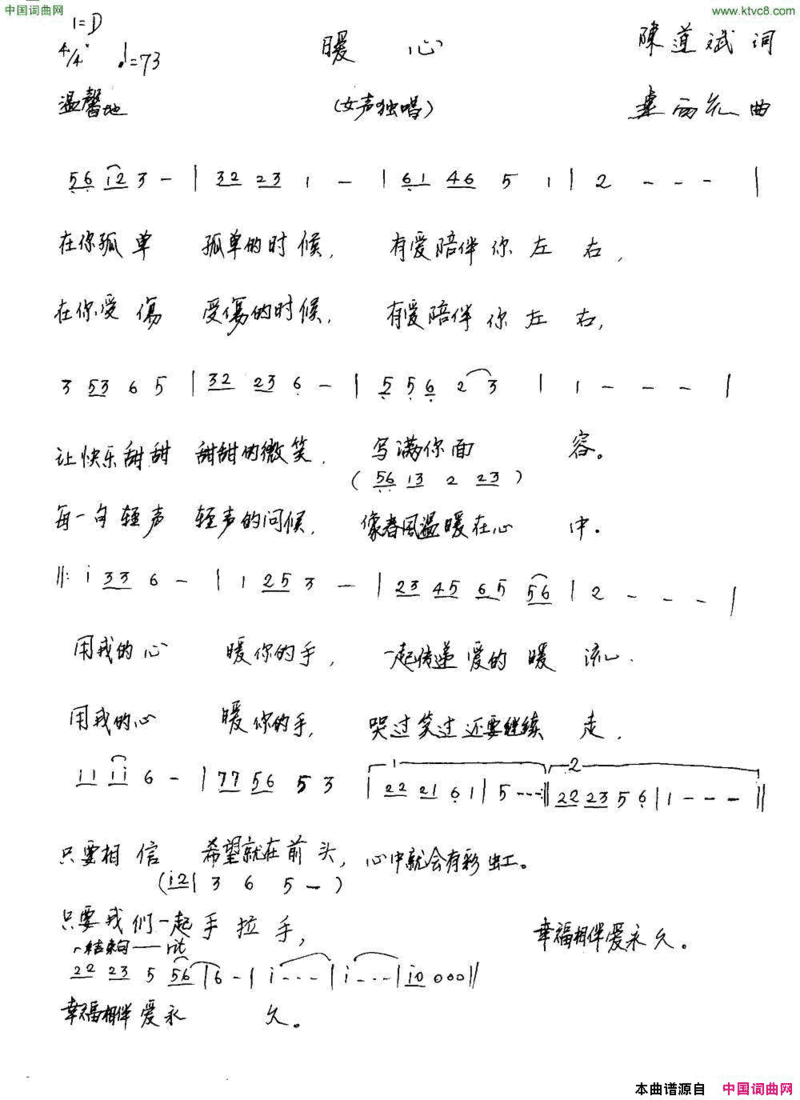 中国词曲网 www.ktvc8.com
1=D
4/4 ♩=73 暖 心 陳道斌 词
温馨地 (女声独唱) 曲
56 i2 3 - | 32 23 1 - | 61 46 5 1 | 2 - - - |
在你孤单 孤单的时候, 有爱陪伴你左右,
在你受傷 受傷的时候, 有爱陪伴你左右,
3 53 6 5 | 32 23 6 - | 5 56 2 3 | 1 - - - |
让快乐甜甜 甜甜的微笑, 写满你面容。
(56 13 2 23)
每一句轻声 轻声的问候, 像春风温暖在心中.
‖: i 33 6 - | 1 25 3 - | 23 45 65 56 | 2 - - - |
用我的心 暖你的手, 一起传递爱的暖流.
用我的心 暖你的手, 哭过笑过还要继续走,
1 2
11 ii 6 - | 77 56 5 3 | 22 21 61 | 5 --- :‖ 22 23 56 | 1 - - - ‖
只要相信 希望就在前头, 心中就会有彩虹。
(i2 | 3 6 5 -)
只要我们一起手拉手, 幸福相伴爱永久。
结束句 —— rit
22 23 5 56 | 6 - | i - - - | i - - - | i0 000 ‖
幸福相伴爱永久。
本曲谱源自 中国词曲网